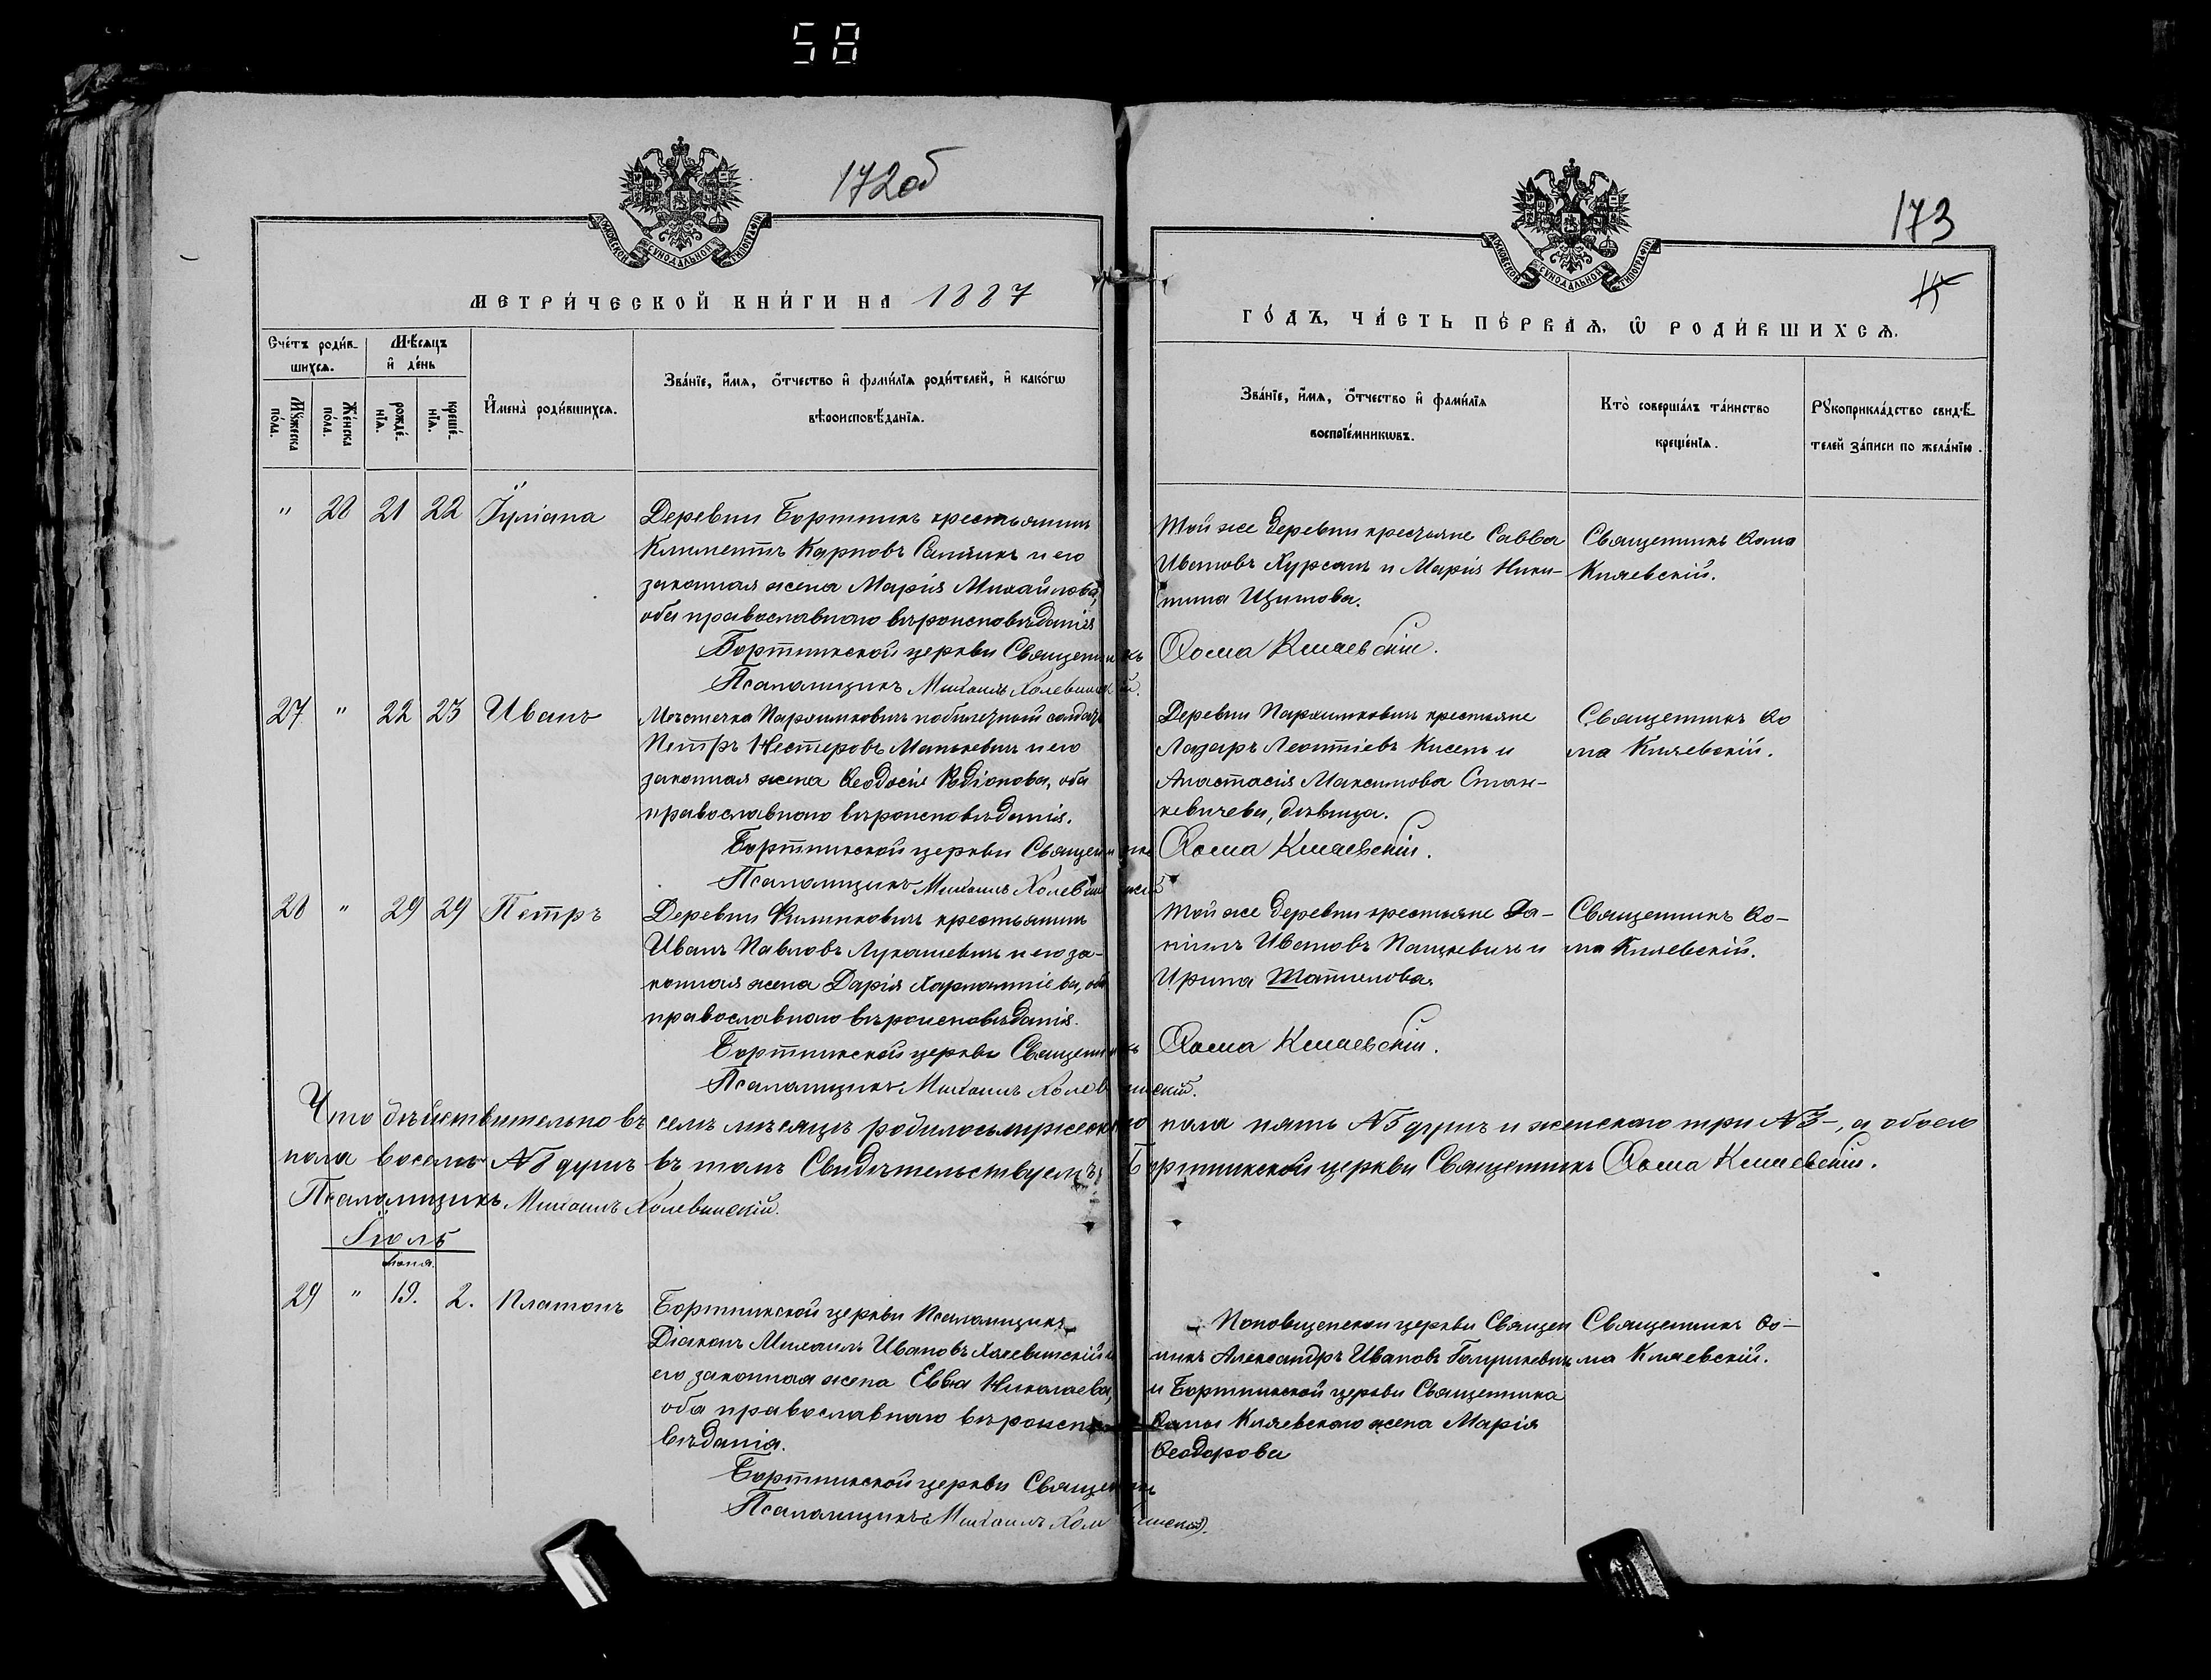 58
172об
173
МОСКОВСКОЙ СѴНОДАЛЬНОЙ ТИПОГРАФІИ
МОСКОВСКОЙ СѴНОДАЛЬНОЙ ТИПОГРАФІИ
МЕТРИ́ЧЕСКОЙ КНИ́ГИ НА 1887
ГО́ДЪ, ЧА́СТЬ ПЕ́РВАѦ, Ѡ҆ РОДИ́ВШИХСѦ.
Сче́тъ роди́в-
шихсѧ.
Мѣ́сѧцъ
и҆ де́нь
Мꙋ́жеска
по́ла.
Же́нска
по́ла.
рожде́-
нїѧ.
креще́-
нїѧ.
И҆мена̀ роди́вшихсѧ.
Зва́нїе, и҆́мѧ, ѻ҆́тчество и҆ фами́лїѧ роди́телей, и҆ како́гѡ
вѣроисповѣ́данїѧ.
Зва́нїе, и҆́мѧ, ѻ҆́тчество и҆ фами́лїѧ
воспрїе́мникѡвъ.
Кто̀ соверша́лъ та́инство
креще́нїѧ.
Рꙋкоприкла́дство свидѣ́-
телей за́писи по жела́нїю.
" 20 21 22 Іуліана
Деревни Бортникъ крестьянинъ
Климентъ Карповъ и его
законная жена Марія Михайлова,
оба православнаго вѣроисповѣданія
Бортникской церкви Священникъ
Псаломщикъ Михаилъ Холевинскій.
Той же деревни крестьяне Савва
Ивановъ Хурсанъ и Марія Ники-
тина
Ѳома Кияевскій.
Священникъ Ѳома
Кияевскій.
27 " 22 23 Иванъ
Мѣстечка Пархимковичъ побилетный солдатъ
Петръ Нестеровъ Манкевичъ и его
законная жена Ѳеодосія Родіонова, оба
православнаго вѣроисповѣданія.
Бортникской церкви Священникъ
Псаломщикъ Михаилъ Холевинскій
Деревни Пархимковичъ крестьяне
Лазарь Леонтіевъ Кисель и
Анастасія Максимова Стан-
кевичева, дѣвица.
Ѳома Кияевскій.
Священникъ Ѳо
ма Кияевскій.
28 " 29 29 Петръ
Деревни Филипковичъ крестьянинъ
Иванъ Павловъ Лукашевичъ и его за-
конная жена Дарія Харлампіева, оба
православнаго вѣроисповѣданія.
Бортникской церкви Священникъ
Псаломщикъ Михаилъ Холевинскій.
Той же деревни крестьяне Да-
ніилъ Ивановъ Пацкевичъ и
Ирина Шатилова.
Ѳома Кияевскій.
Священникъ Ѳо-
ма Кияевскій.
Что дѣйствительно въ семъ мѣсяцѣ родилось мужескаго пола пять №5 душъ и женскаго три №3-, а обоего
пола восемь №8 душъ въ томъ Свидѣтельствуемъ: Бортникской церкви Священникъ Ѳома Кияевскій.
Псаломщикъ Михаилъ Холевинскій.
Іюль
Іюня.
29 " 19. 2. Платонъ
Бортникской церкви Псаломщикъ
Діаконъ Михаилъ Ивановъ Холевинскій и
его законная жена Евва Николаева,
оба православнаго вѣроиспо-
вѣданія.
Бортникской церкви Священникъ
Псаломщикъ Михаилъ Холевинскій.
церкви Священ
никъ Александръ Ивановъ
и Бортникской церкви Священника
Ѳомы Кияевскаго жена Марія
Ѳеодорова
Священникъ Ѳо-
ма Кияевскій.